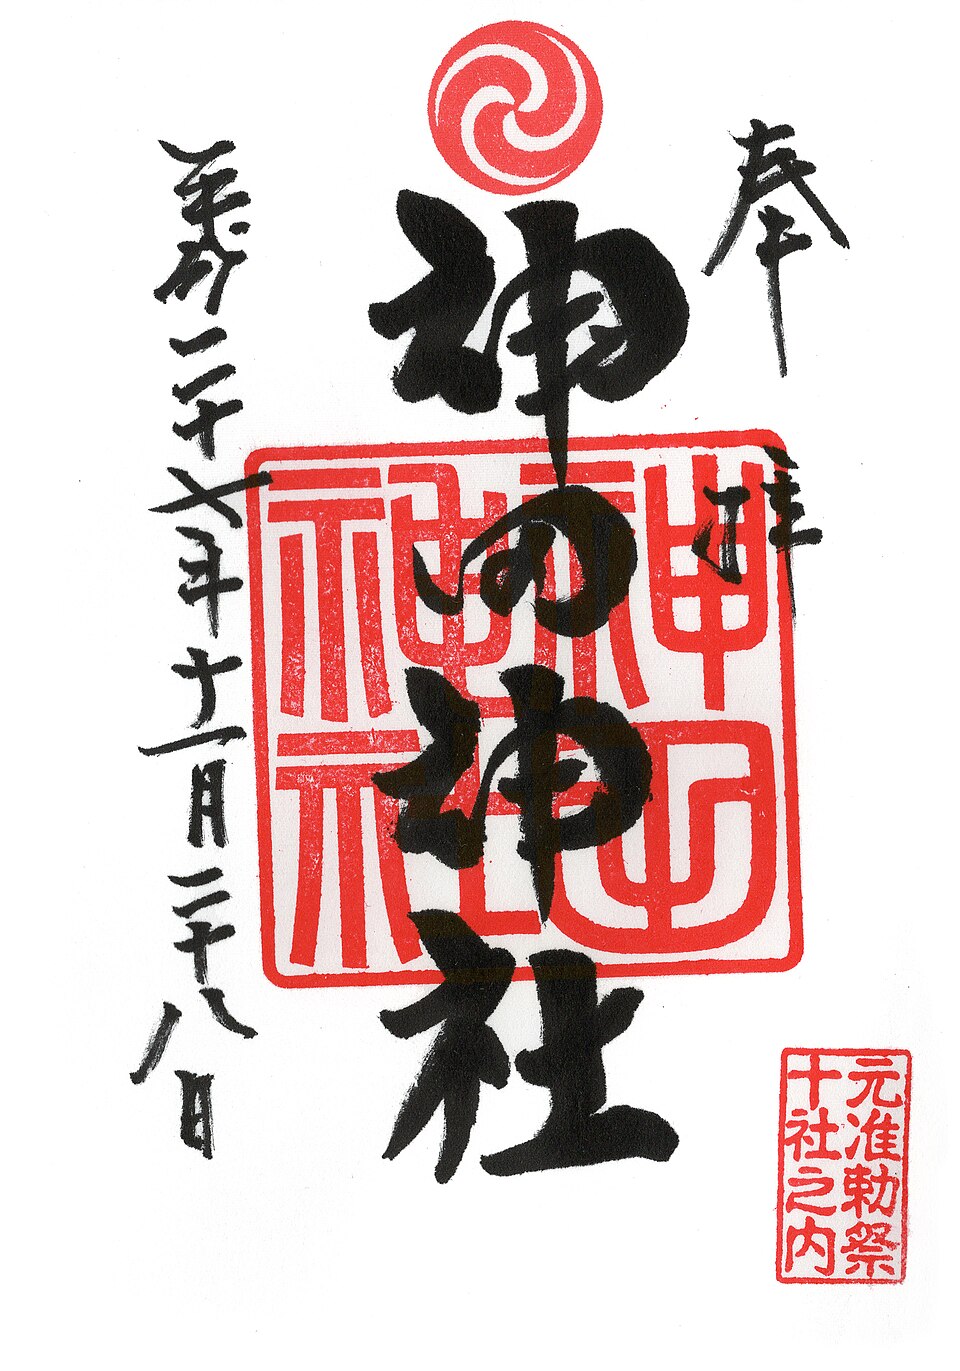 奉拝
神田神社
神田
神社
平成二十七年十一月二十八日
元准勅祭
十社之内